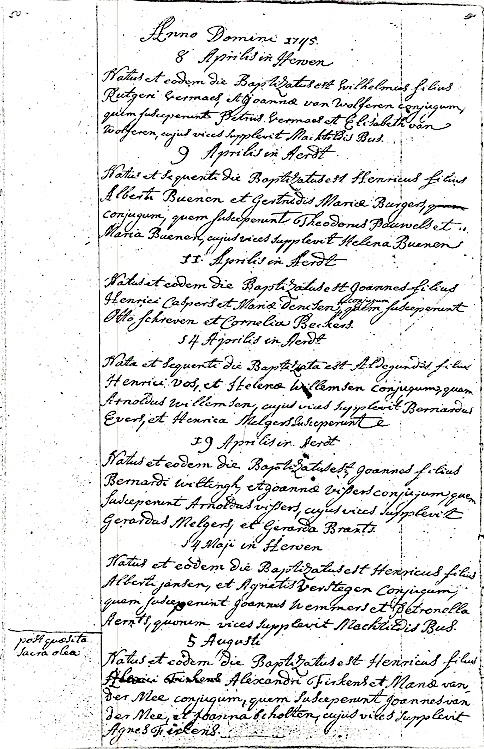 50
Anno Domini 1795
8 Aprilis in Herven
Natus et eodem die Baptizatus est Wilhelmus filius
Rutgeri Vermaes, et Joannæ van Wolferen conjugum,
quem susceperunt Petrus Vermaes et Elisabeth van
Wolferen, cujus vices supplevit Machtildis Bus.
9 Aprilis in Aerdt
Natus et sequenti die Baptizatus est Henricus filius
Alberti Buenen et Gertrudis Mariæ Burgers,
conjugum, quem susceperunt Theodorus Pauwels et
Maria Buenen, cujus vices supplevit Helena Buenen
11 Aprilis in Aerdt
Natus et eodem die Baptizatus est Joannes filius
Henrici Caspers et Mariæ Denssen, conjugum quem susceperunt
Otto Schreven et Cornelia Beckers.
14 Aprilis in Aerdt
Nata et sequenti die Baptizata est Aldegundis filia
Henrici Vos, et Helenæ Willemsen conjugum, quam
Arnoldus Willemsen, cujus vices supplevit Bernardus
Evers, et Henrica Melgers susceperunt
19 Aprilis in Aerdt
Natus et eodem die Baptizatus est Joannes filius
Bernardi Wiltingh et Joannæ Vissers conjugum, quem
susceperunt Arnoldus Vissers, cujus vices supplevit
Gerardus Melgers, et Gerarda Brants
14 Maji in Herven
Natus et eodem die Baptizatus est Henricus filius
Alberti Jansen, et Agnetis Verstegen Conjugum,
quem susceperunt Joannes Wemmers et Petronella
Aernts, quorum vices supplevit Machtildis Bus.
5 Augusti
post quæsita
sacra olea
Natus et eodem die Baptizatus est Henricus filius
Alexandri Firkens et Mariæ van
der Mee conjugum, quem susceperunt Joannes van
der Mee, et Joanna Scholten, cujus vices supplevit
Agnes Firkens.